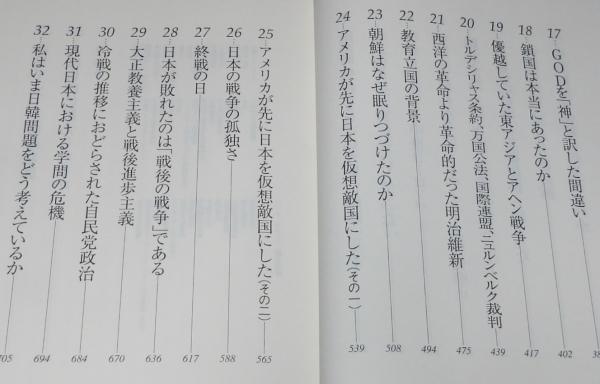 17 GODを「神」と訳した間違い 38
18 鎖国は本当にあったのか 402
19 優越していた東アジアとアヘン戦争 417
20 トルデシリャス条約、万国公法、国際連盟、ニュルンベルク裁判 439
21 西洋の革命より革命的だった明治維新 475
22 教育立国の背景 494
23 朝鮮はなぜ眠りつづけたのか 508
24 アメリカが先に日本を仮想敵国にした(その一) 539
25 アメリカが先に日本を仮想敵国にした(その二) 565
26 日本の戦争の孤独さ 588
27 終戦の日 617
28 日本が敗れたのは「戦後の戦争」である 636
29 大正教養主義と戦後進歩主義 670
30 冷戦の推移におどらされた自民党政治 684
31 現代日本における学問の危機 694
32 私はいま日韓問題をどう考えているか 705